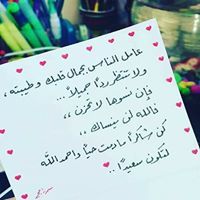 عامل الناس بجمال قلبك وطيبته ،
ولا تنتظر رداً جميلاً ...
فإن نسوها لا تحزن ،،
فالله لن ينساك ،،
كن شاكراً ما دمت حياً واحمد الله
لتكون سعيداً ..